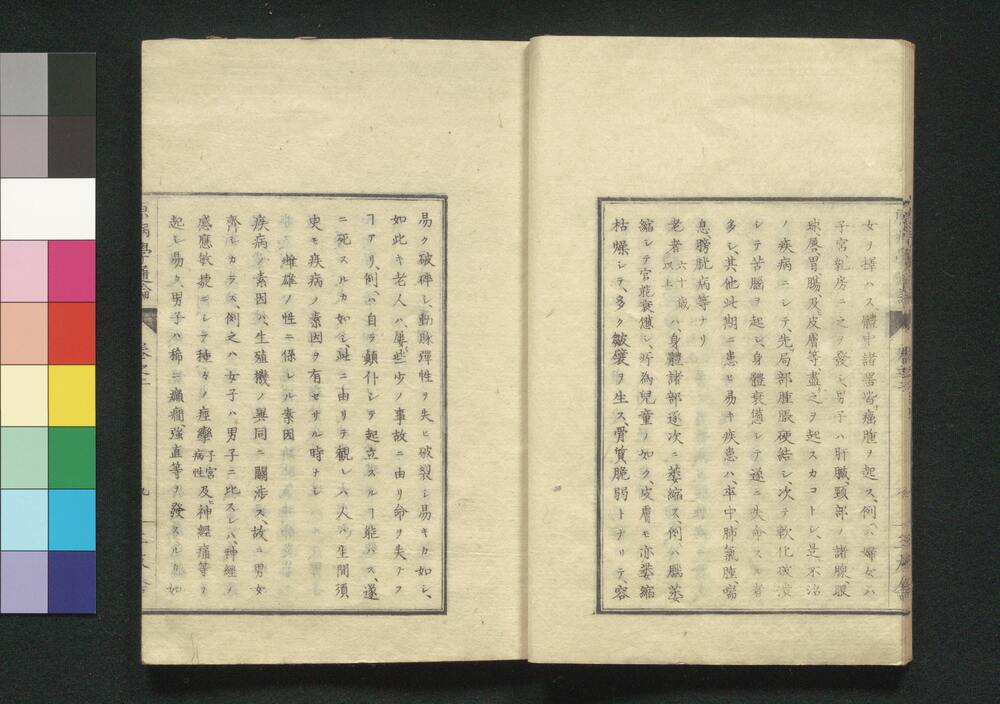 女リ擇ハス體中諸器皆癌腫ヲ起ス、例ハ婦女ハ
子宮、乳房ニ之ヲ發シ、男子ハ肝臓、頸部ノ諸腺、眼
球、唇、胃、腸、及皮膚等、盡之ヲ起スカコトシ、是不治
ノ疾病ニシテ、先局部腫脹硬結シ、次テ軟化破潰
シテ苦腦ヲ起シ、身體衰憊シテ遂ニ失命スル者
多シ、其他此期ニ患ヒ易キ疾患ハ、卒中、肺氣腫、喘
息、膀胱病等ナリ
老者六十歳以上ハ、身體諸部逐次ニ萎縮ス、例ハ腦萎
縮シテ官能衰憊シ、所為兒童ノ如ク、皮膚モ亦萎縮
枯燥シテ、多ク皺襞ヲ生ス、骨質脆弱トナリテ、容
易ク破碎シ、動脉彈性ヲ失ヒ破裂シ易キカ如シ、
如此キ老人ハ、屡些少ノ事故ニ由リ命ヲ失フ
ヿアリ、例ハ自ラ顛仆シテ起立スルヿ能ハス、遂
ニ死スルカ如シ、此ニ由リテ観レハ人ハ生間須
臾モ疾病ノ素因ヲ有セサル時ナシ
雌雄ノ性ニ係レル素因
疾病ノ素因ハ、生殖機ノ異同ニ關渉ス、故ニ男女
齊シカラス、例之ハ女子ハ男子ニ比スレハ、神經ノ
感應敏捷ニシテ種々ノ痙攣子宮病性及ヒ神經痛等ヲ
起シ易ク、男子ハ稀ニ癲癇、強直等ヲ發スルカ如
原病學通論
卷之二
九